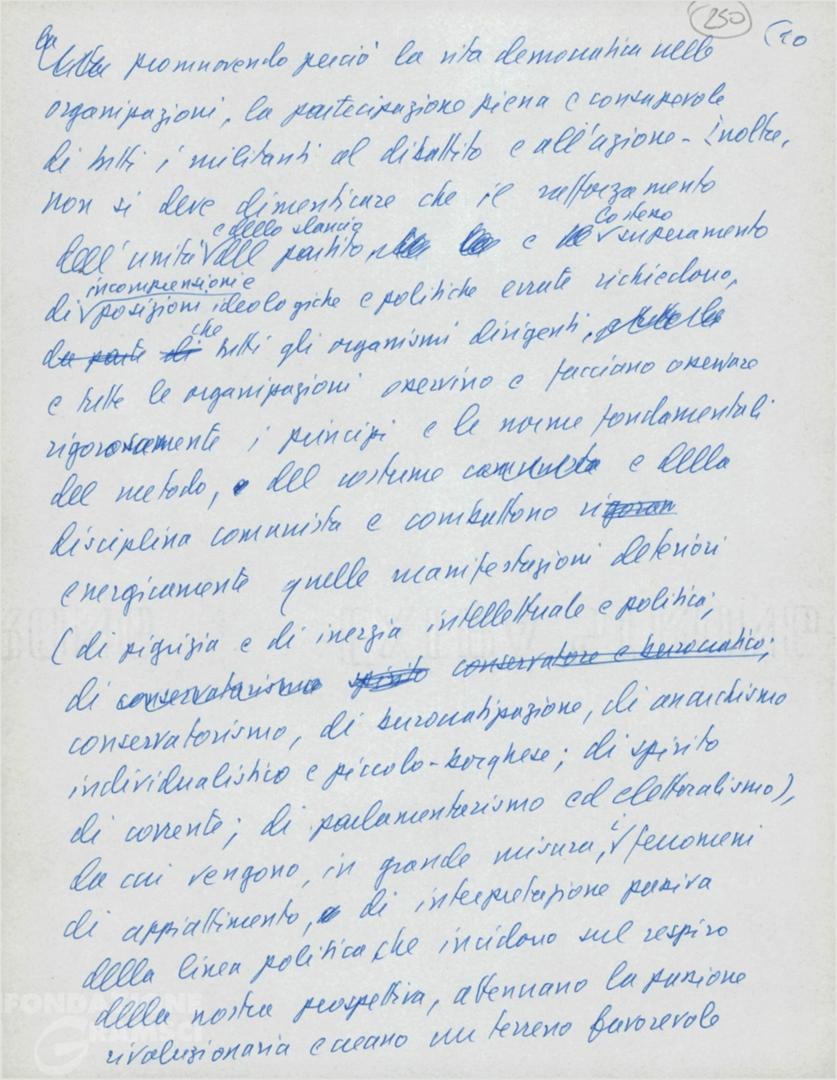 250
(10
promuovendo perciò la vita democratica nelle
organizzazioni, la partecipazione piena e consapevole
di tutti i militanti al dibattito e all'azione - Inoltre,
non si deve dimenticare che il rafforzamento
e dello slancio costero
dell'unità del partito, e superamento
incomprensioni e
di posizioni ideologiche e politiche errate richiedono,
che
da parte di tutti gli organismi dirigenti,
e tutte le organizzazioni osservino e facciano osservare
rigorosamente i principi e le norme fondamentali
del metodo, del costume comunista e della
disciplina comunista e combattono rigoran
energicamente quelle manifestazioni deteriori
(di pigrizia e di inerzia intellettuale e politica;
di conservatorismo spirito conservatore e burocratico;
conservatorismo, di burocratizzazione, di anarchismo
individualistico e piccolo-borghese; di spirito
di corrente; di parlamentarismo ed elettoralismo),
da cui vengono, in grande misura, i fenomeni
di appiattimento, di interpretazione passiva
della linea politica, che incidono sul respiro
della nostra prospettiva, attenuano la passione
rivoluzionaria e creano un terreno favorevole
FONDAZIONE
GRAMSCI